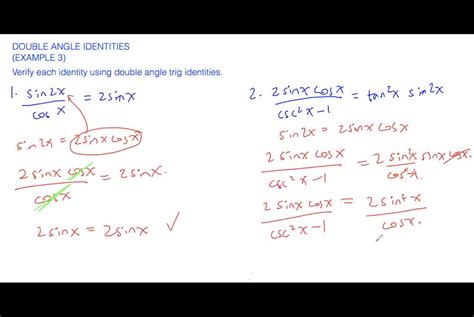 DOUBLE ANGLE IDENTITIES
(EXAMPLE 3)
Verify each identity using double angle trig identities.
1. sin2x / cosx = 2sinx
sin2x = 2sinxcosx
2sinx cosx / cosx = 2sinx.
2sinx = 2sinx ✓
2. 2sinxcosx / csc²x-1 = tan²x sin2x
sin2x = 2sinxcosx
2sinx cosx / csc²x-1 = 2 sin²x sinx cosx / cos²x.
2sinx cosx / csc²x-1 = 2sin²x / cosx.